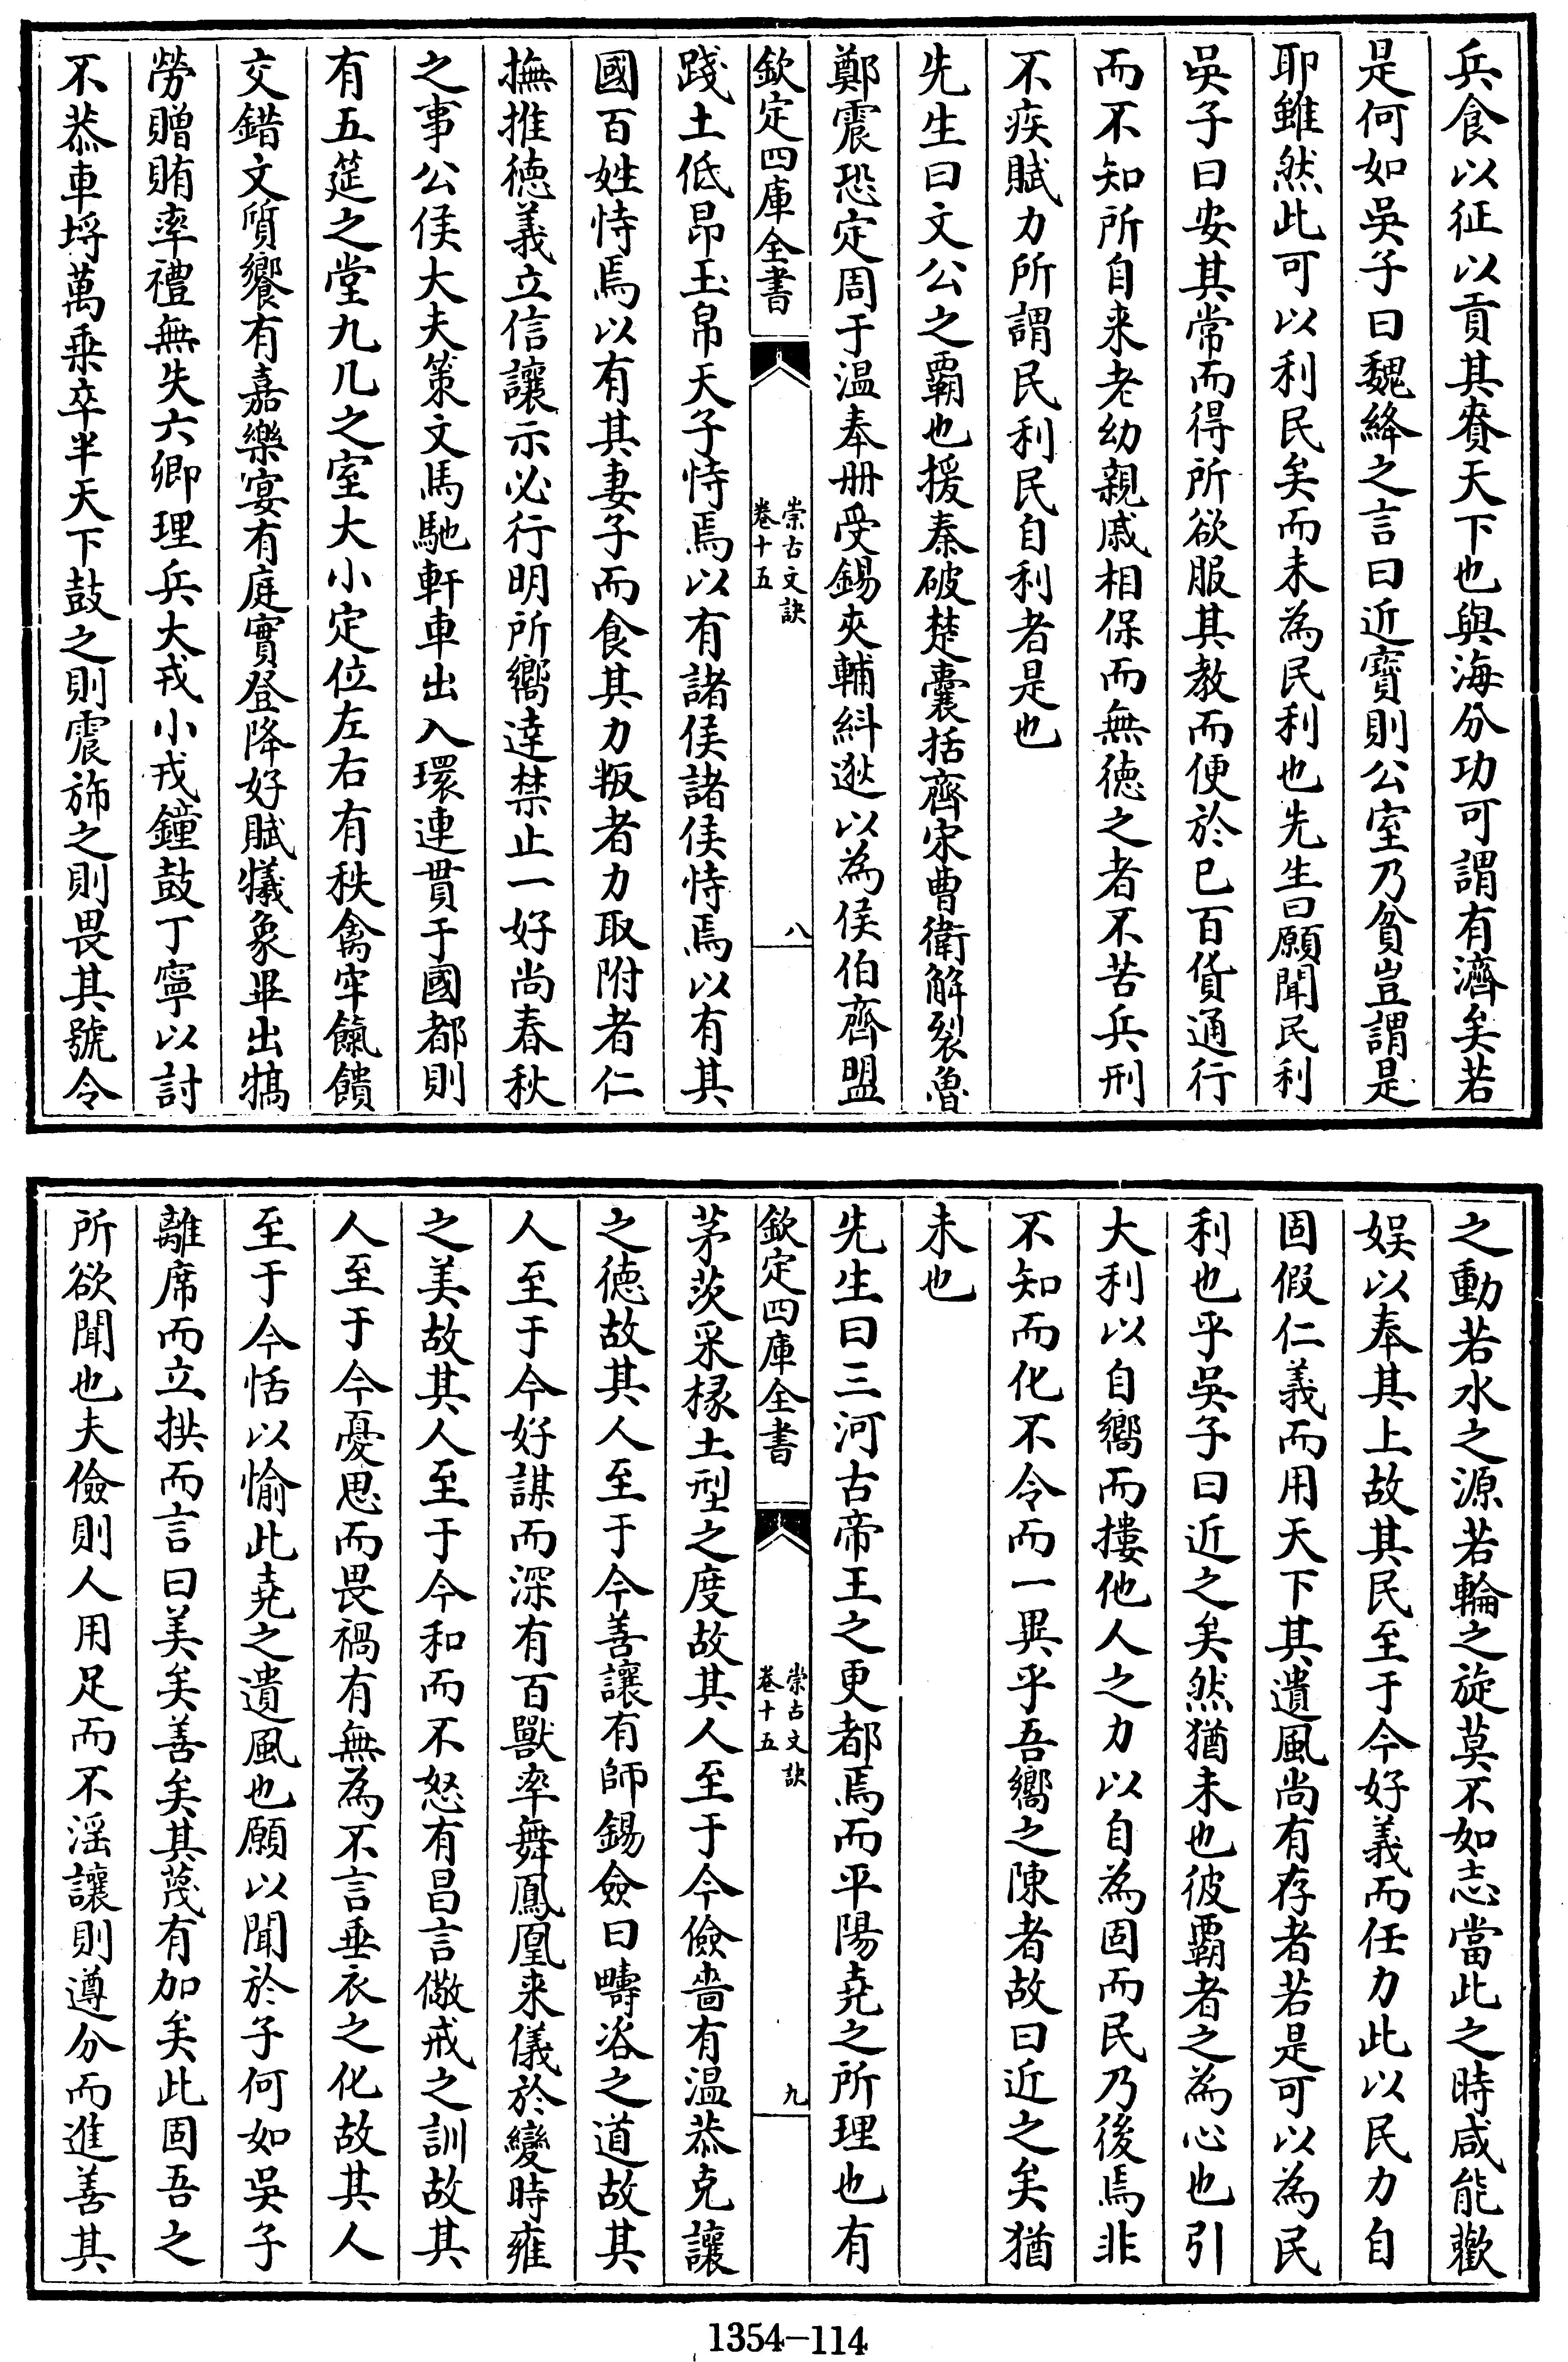 兵食以征以貢其賚天下也與海分功可謂有濟矣若
是何如吳子曰魏絳之言曰近寳則公室乃貧豈謂是
耶雖然此可以利民矣而未為民利也先生曰願聞民利
吳子曰安其常而得所欲服其教而便於已百貨通行
而不知所自来老幼親戚相保而無徳之者不苦兵刑
不疾賦力所謂民利民自利者是也
先生曰文公之覇也援秦破楚囊括齊宋曹衛解裂魯
鄭震恐定周于温奉册受錫夾輔糾逖以為侯伯齊盟
欽定四庫全書
崇古文訣
卷十五
八
踐土低昂玉帛天子恃焉以有諸侯諸侯恃焉以有其
國百姓恃焉以有其妻子而食其力叛者力取附者仁
撫推徳義立信讓示必行明所嚮達禁止一好尚春秋
之事公侯大夫策文馬馳軒車出入環連貫于國都則
有五筵之堂九几之室大小定位左右有秩禽牢餼饋
交錯文質饗有嘉樂宴有庭實登降好賦犧象畢出犒
勞贈賄率禮無失六卿理兵大戎小戎鐘鼓丁寧以討
不恭車埒萬乗卒半天下鼓之則震旆之則畏其號令
之動若水之源若輪之旋莫不如志當此之時咸能歡
娱以奉其上故其民至于今好義而任力此以民力自
固假仁義而用天下其遺風尚有存者若是可以為民
利也乎吳子曰近之矣然猶未也彼覇者之為心也引
大利以自嚮而摟他人之力以自為固而民乃後焉非
不知而化不令而一異乎吾嚮之陳者故曰近之矣猶
未也
先生曰三河古帝王之更都焉而平陽堯之所理也有
欽定四庫全書
崇古文訣
卷十五
九
茅茨采椽土型之度故其人至于今儉嗇有温恭克讓
之徳故其人至于今善讓有師錫僉曰疇咨之道故其
人至于今好謀而深有百獸率舞鳳凰来儀於變時雍
之美故其人至于今和而不怒有昌言儆戒之訓故其
人至于今憂思而畏禍有無為不言垂衣之化故其人
至于今恬以愉此堯之遺風也願以聞於子何如吳子
離席而立拱而言曰美矣善矣其蔑有加矣此固吾之
所欲聞也夫儉則人用足而不淫讓則遵分而進善其
1354-114